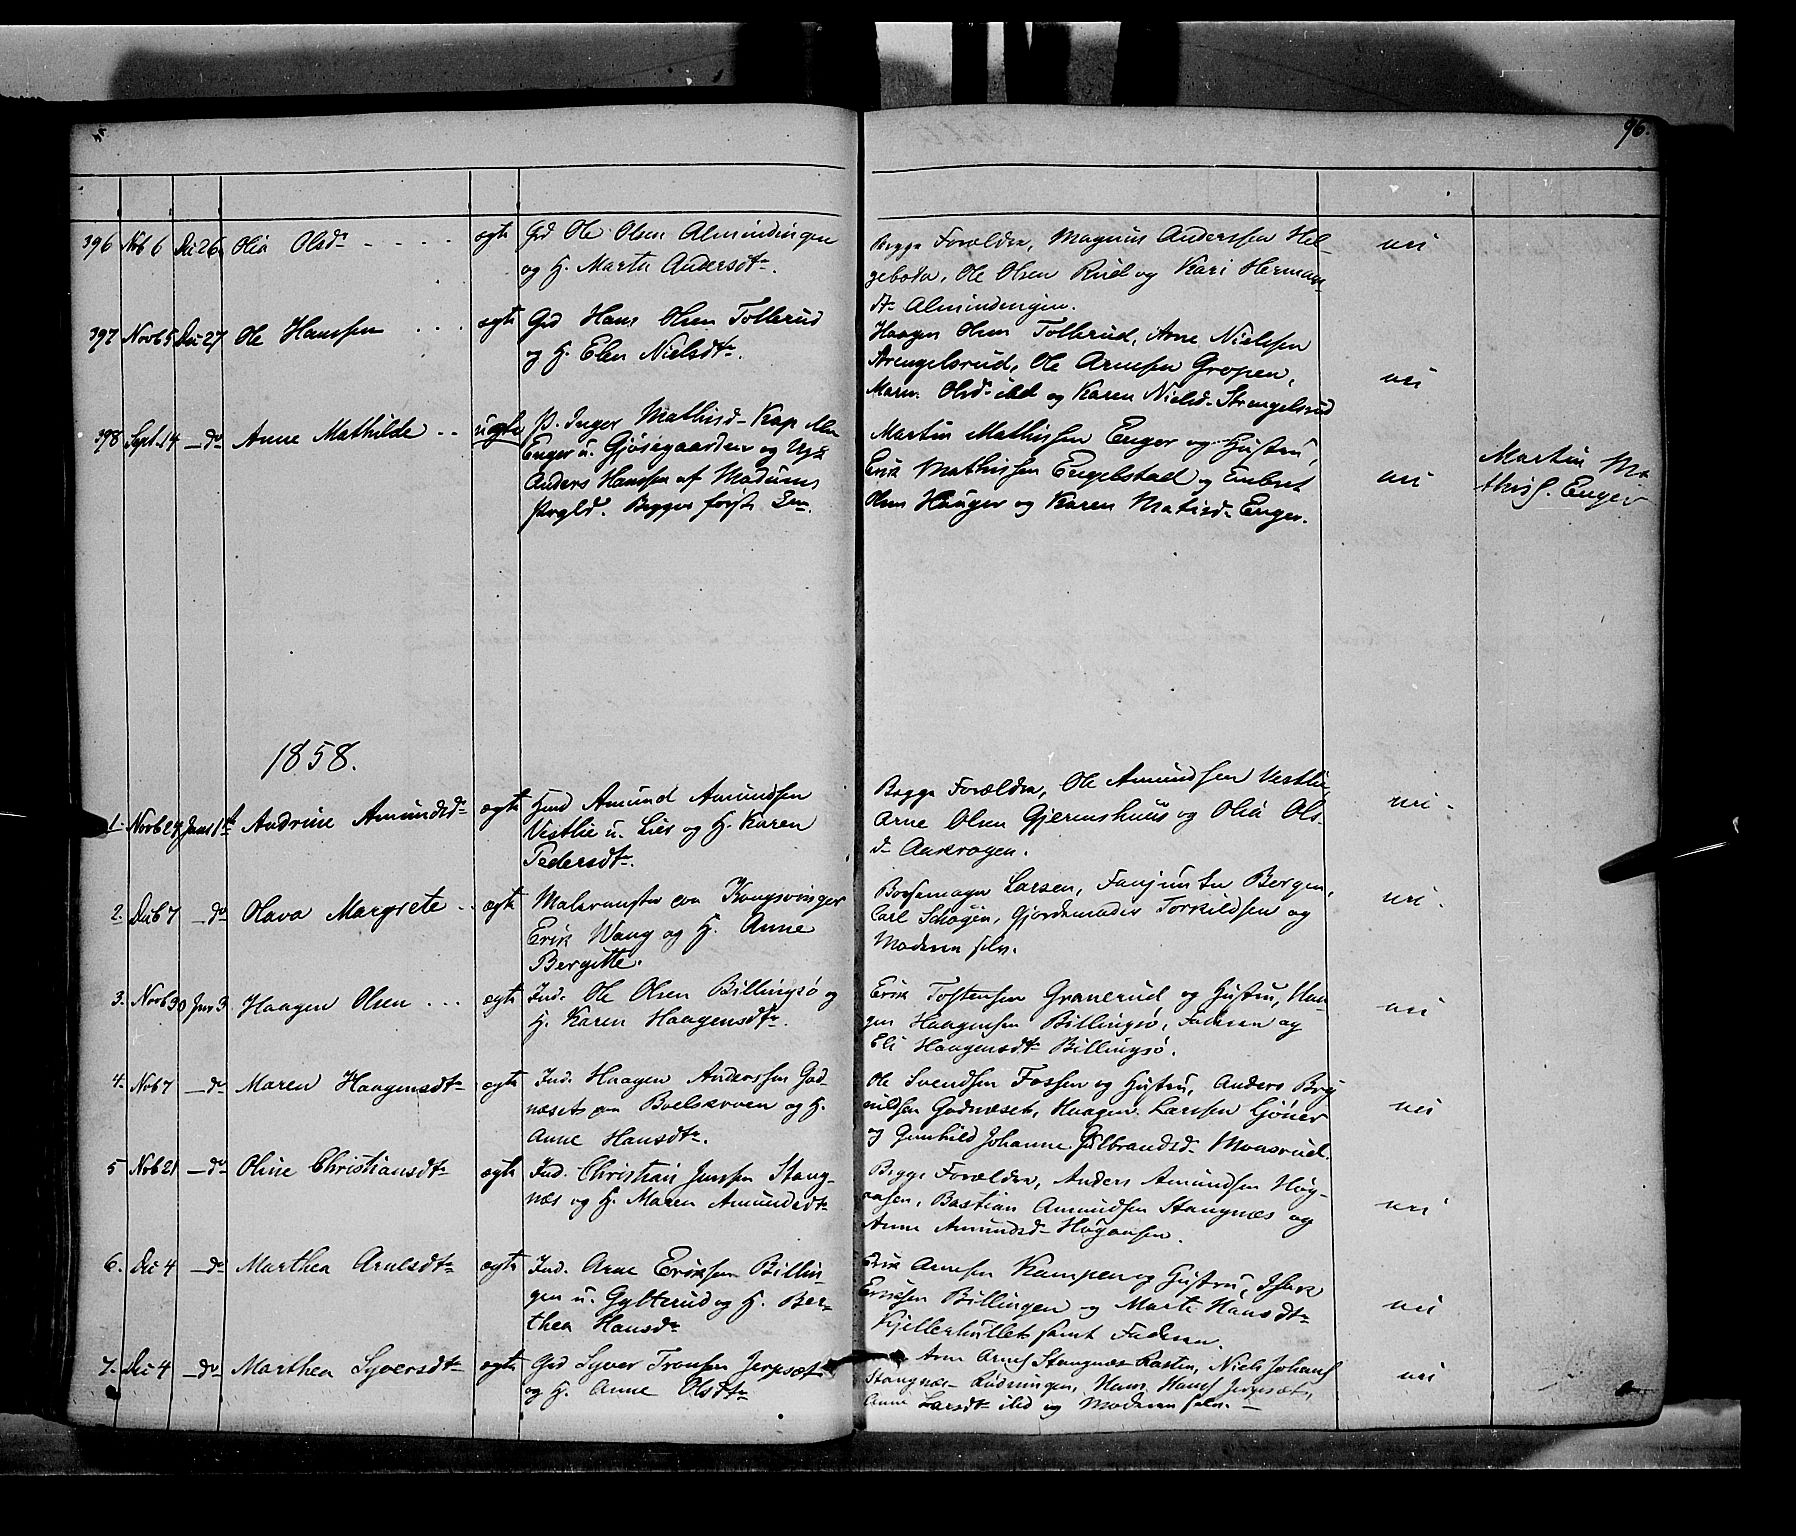 96.
396 Novb 6 Dec 26 Olia Olsdr - - - - ægte Grd Ole Olsen Almindingen
og H. Marte Andersdtr.
Begge Forældre, Magnus Anderssen Hel-
gebøta, Ole Olsen Rud og Kari Herman-
dtr Almindingen.
nei
397 Novb 5 Dec 27 Ole Hanssen . . . ægte Grd Hans Olsen Tollerud
og H. Elen Nielsdtr.
Haagen Olsen Tollerud, Arne Nielsen
Strengelsrud, Ole Arnesen Gropen,
Maren Olsd ibd og Karen Nielsd. Strengelsrud
nei
398 Sept. 14 - do Anne Mathilde . . uægte P. Inger Mathisd
Enger u. Gjøsegaarden og
Anders Hanssen af Modums
Prgld. Begges første
Martin Mathissen Enger og Hustru,
Erik Mathissen Engelstad og Embret
Olsen Hauger og Karen Matisd. Enger.
nei
Martin Ma-
this. Enger
1858.
1. Novb 24 Janr 1st Andrine Amundsdr ægte Hmd Amund Amundsen
Vestlie u. Lier og H. Karen
Pedersdtr.
Begge Forældre, Ole Amundsen Vestlie,
Arne Olsen Gjermshuus og Olia Ols-
dr Aaskrogen.
nei.
2. Decb 7 - do Olava Margrete . . ægte Malermester paa Kongsvinger
Erik Wang og H. Anne
Bergitte.
Larsen, Bergen,
Carl Schøgen, Gjordemoder Torkildsen og
Moderen selv.
nei.
3. Novb 30 Janr 3. Haagen Olsen . . . ægte Ind. Ole Olsen Billingsø og
H. Karen Haagensdtr.
Erik Tostensen Granerud og Hustru, Haa-
gen Haagensen Billingsø, Faderen og
Eli Haagensdtr Billingsø.
nei
4. Novb 7 - do Maren Haagensdtr ægte Ind. Haagen Anderssen God-
næset paa Boelskoven og H.
Anne Hansdtr.
Ole Svendsen Fossen og Hustru, Anders Bry-
nildsen Godnæset, Haagen Larssen Ljøner
og Gunhild Johanne Gulbrandsd. Monsrud.
nei
5 Novb 21 - do Oline Christiansdtr ægte Ind. Christian Jenssen Stang-
næs og H. Maren Amundsdtr
Begge Forældre, Anders Amundsen Høg-
aasen, Bastian Amundsen Stangnæs og
Anne Amundsd. Høgaasen.
nei
6. Dec 4 - do Marthea Arnesdtr ægte Ind. Arne Eriksen Billin-
gen u. Gylterud og H. Ber-
thea Hansdr
Erik Arnesen Kampen og Hustru, Isak
Eriksen Billingen og Marte Hansdtr
Kjellerhullet samt Faderen.
nei
7. Dec 4 - do Marthea Syversdtr ægte Grd Syver Tronsen Jerpset
og H. Anne Olsdtr
Arne Arnes. Stangnæs Rasten, Niels Johans.
Stangnæs Rudningen, Hans Hans. Jerpset,
Anne Larsdtr ibd og Moderen selv.
nei